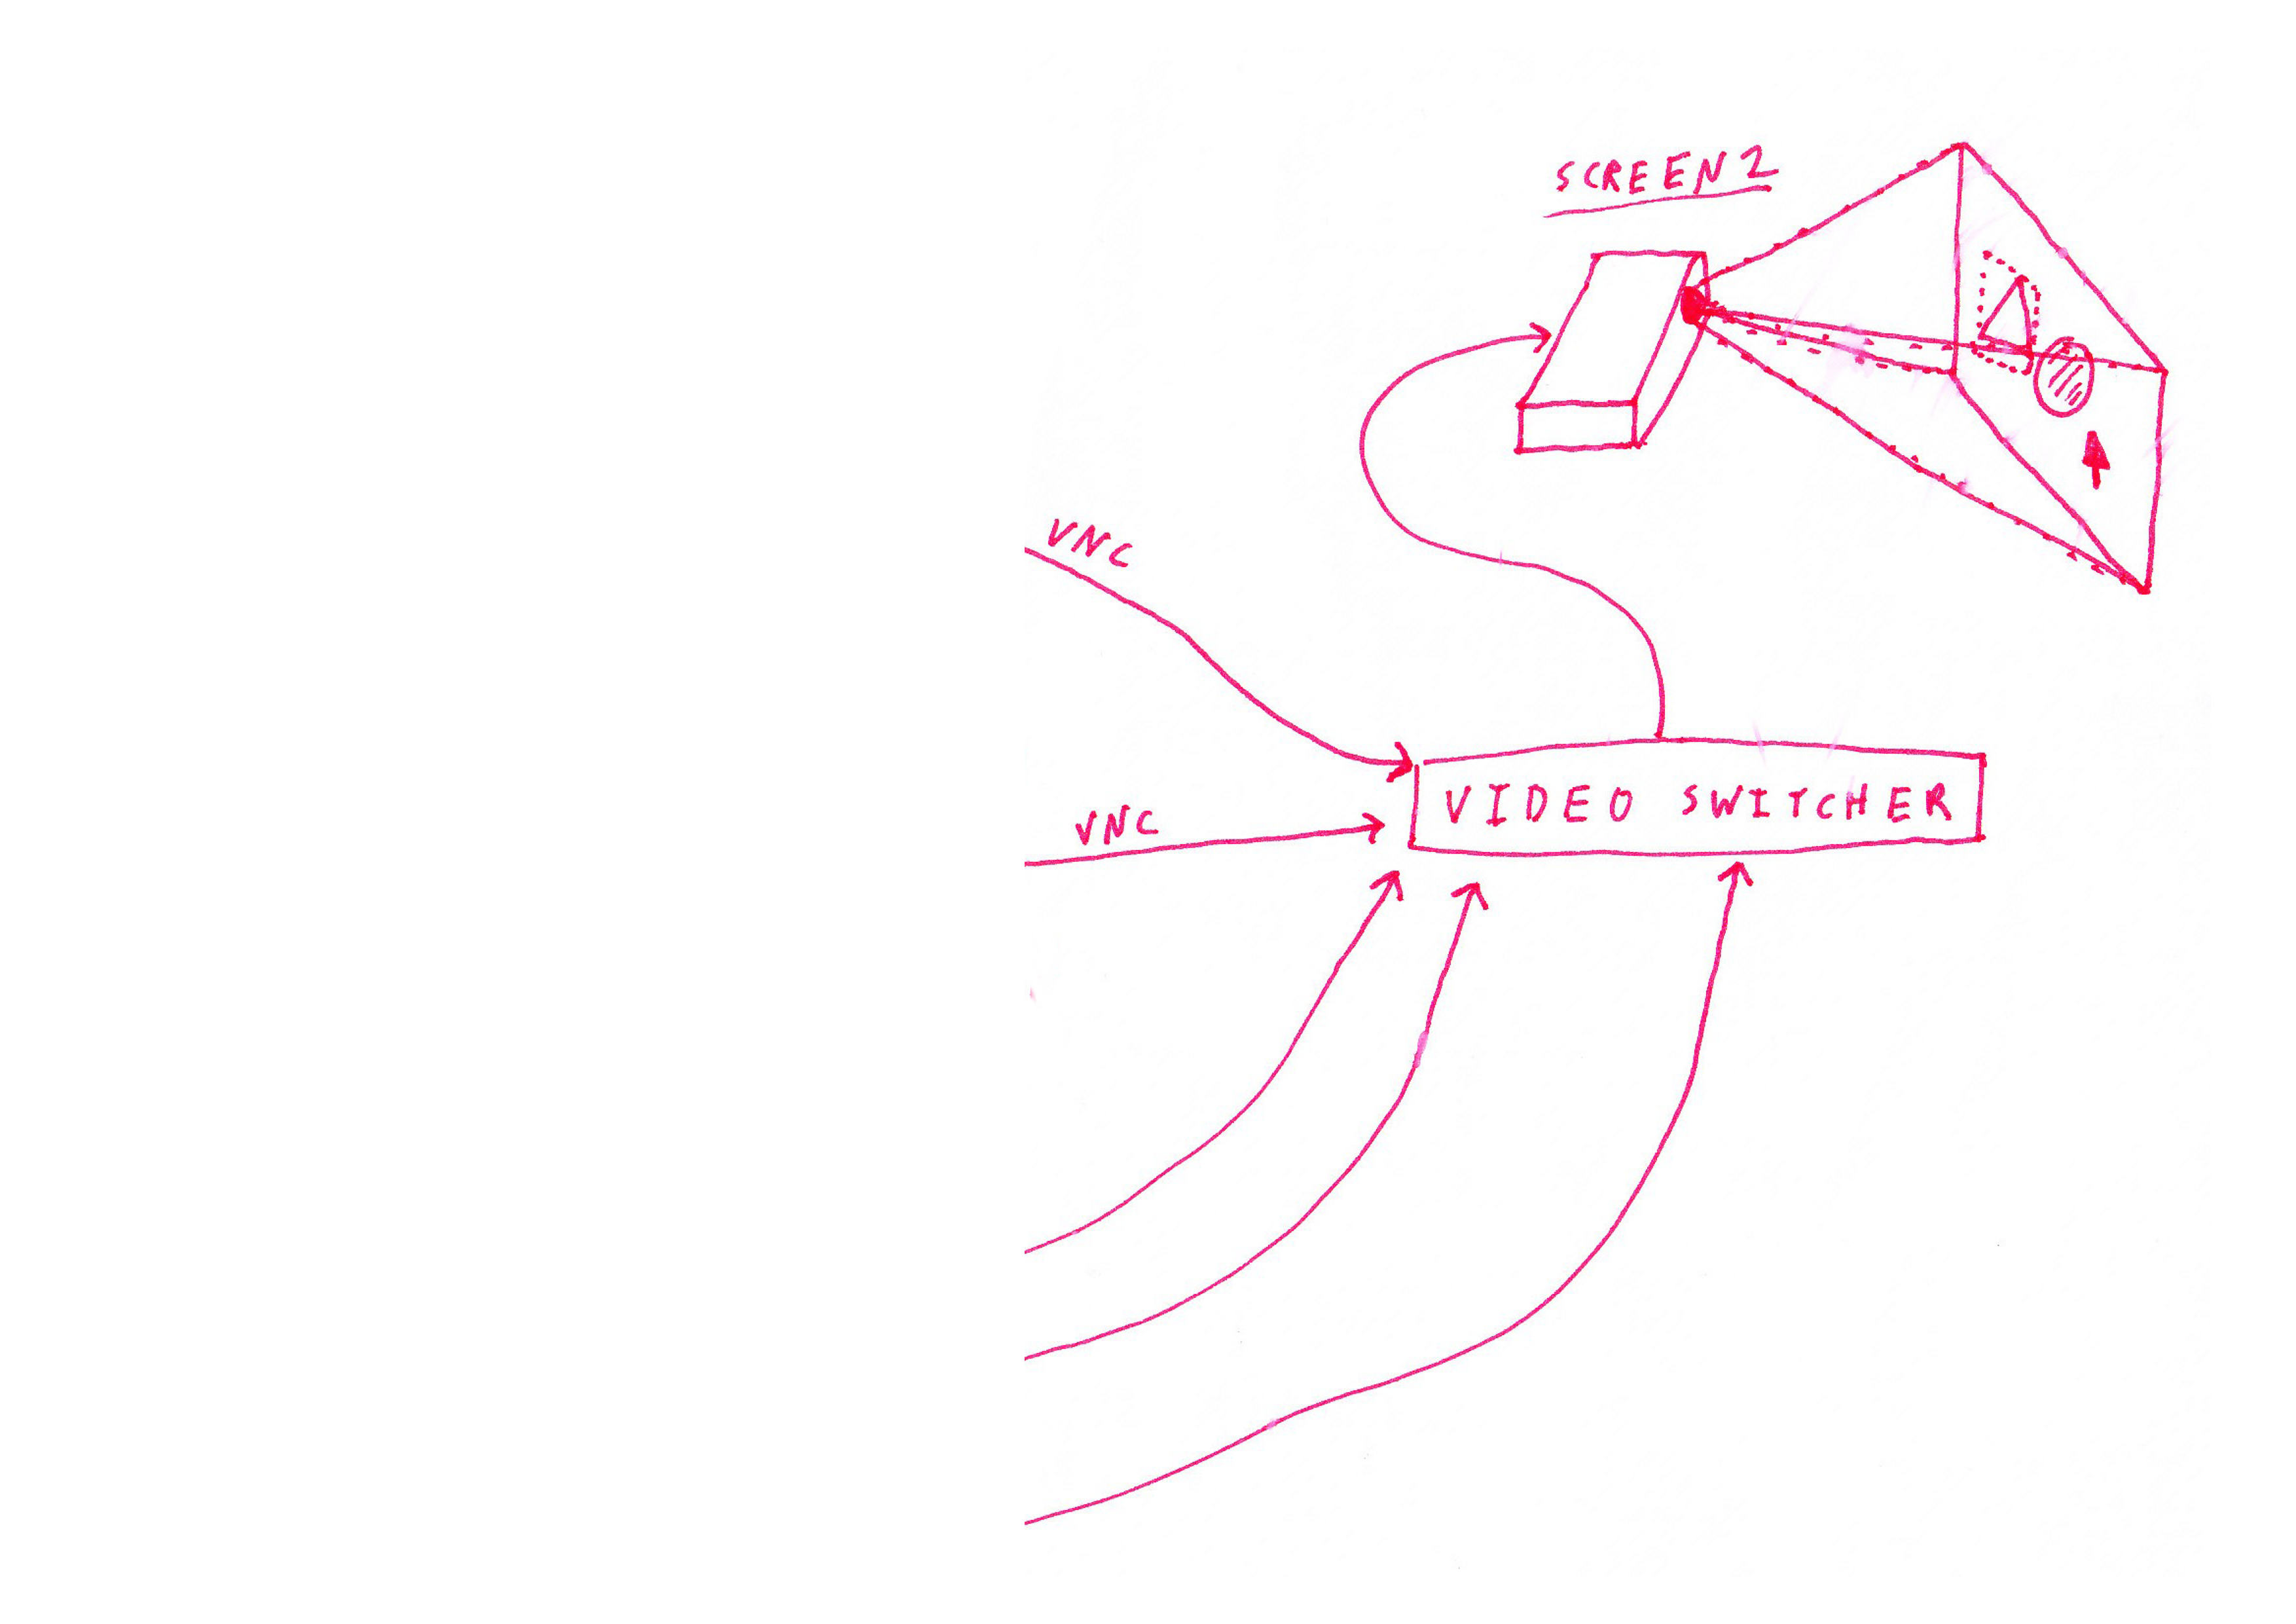 SCREEN 2
VNC
VNC
VIDEO SWITCHER